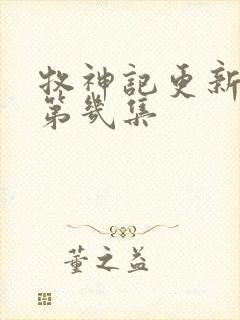 牧神記更新
第幾集
董之益